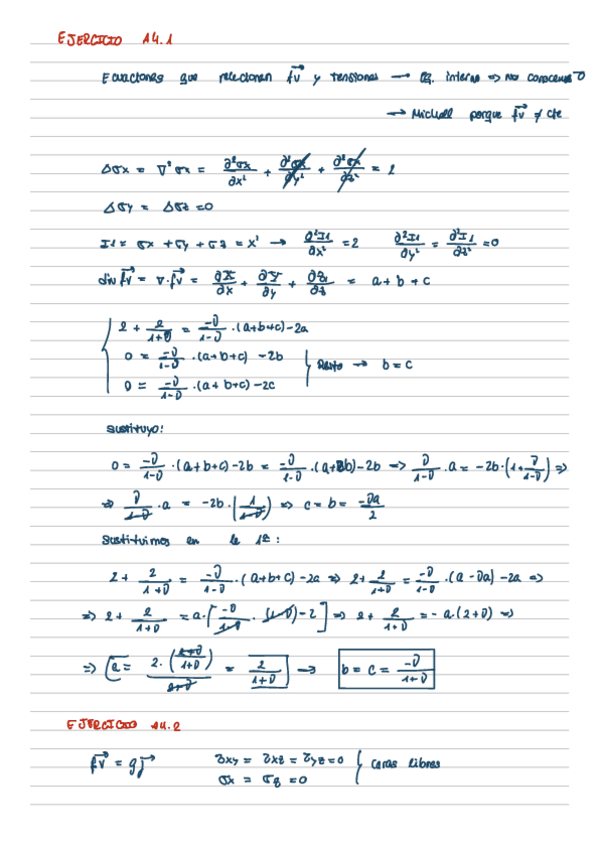 EJERCICIO 14.1
Ecuaciones que relacionan f⃗v y tensiones → Eq. interno => No conocemos υ
→ Michell porque f⃗v ≠ cte
Δσx = ∇²σx = ∂²σx/∂x² + ∂²σx/∂y² + ∂²σx/∂z² = 2
Δσy = Δσz = 0
I1 = σx + σy + σz = x² → ∂²I1/∂x² = 2 ∂²I1/∂y² = ∂²I1/∂z² = 0
div f⃗v = ∇·f⃗v = ∂X/∂x + ∂Y/∂y + ∂Z/∂z = a + b + c
2 + 2/(1+υ) = -υ/(1-υ) · (a+b+c) - 2a
0 = -υ/(1-υ) · (a+b+c) - 2b
0 = -υ/(1-υ) · (a+b+c) - 2c
Resto → b = c
Sustituyo:
0 = -υ/(1-υ) · (a+b+c) - 2b = -υ/(1-υ) · (a+2b) - 2b => υ/(1-υ) · a = -2b · (1+υ/(1-υ)) =>
=> υ/(1-υ) · a = -2b · (1/(1-υ)) => c = b = -υa/2
Sustituimos en la 1ª:
2 + 2/(1+υ) = -υ/(1-υ) · (a+b+c) - 2a => 2 + 2/(1+υ) = -υ/(1-υ) · (a - υa) - 2a =>
=> 2 + 2/(1+υ) = a · [-υ/(1-υ) · (1-υ) - 2] => 2 + 2/(1+υ) = -a · (2+υ) =>
=> a = 2 · ((2+υ)/(1+υ))/(2+υ) = 2/(1+υ) → b = c = -υ/(1+υ)
EJERCICIO 14.2
f⃗v = g j⃗ τxy = τxz = τyz = 0
σx = σz = 0
Caras libres